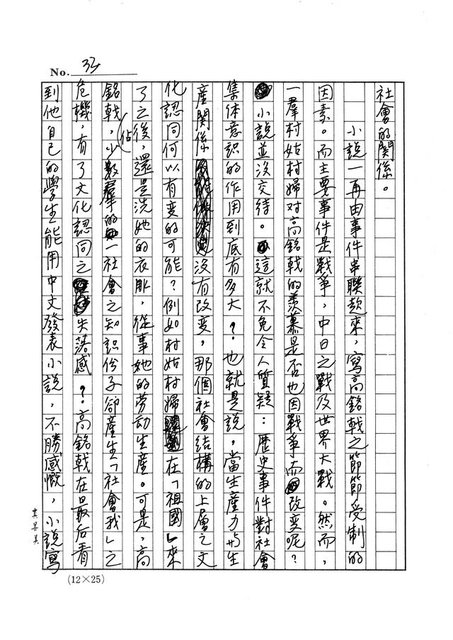 No. 33
社會的關係。
小說一再由事件串聯起來，寫高銘戟之節節受制的
因素。而主要事件是戰爭，中日之戰及世界大戰。然而，
一羣村姑村婦对高銘戟的羨慕是否也因戰爭而改變呢？
小說並沒交待。這就不免令人質疑：歷史事件對社會
集体意識的作用到底有多大？也就是說，當生產力與生
產關係沒有改變，那個社會結構的上層之文
化認同何以有变的可能？例如村姑村婦在「祖國」來
了之後，還是洗她的衣服，從事她的劳动生產。可是，高
銘戟，佔少數羣的一社會之知識份子卻產生「社會我」之
危機，有了文化認同之失落感？高銘戟在最后看
到他自己的學生能用中文發表小說，不勝感慨，小說寫
(12×25)